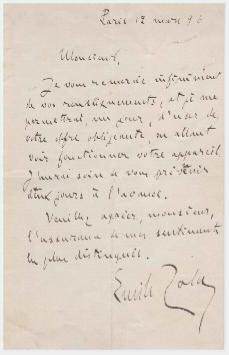 Paris 12 mars 96
Monsieur,
Je vous remercie infiniment
de vos renseignements, et je me
permettrai, un jour, d'user de
votre offre obligeante, en allant
voir fonctionner votre appareil.
J'aurai soin de vous prévenir
deux jours à l'avance.
Veuillez agréer, monsieur,
l'assurance de mes sentiments
les plus distingués.
Emile Zola